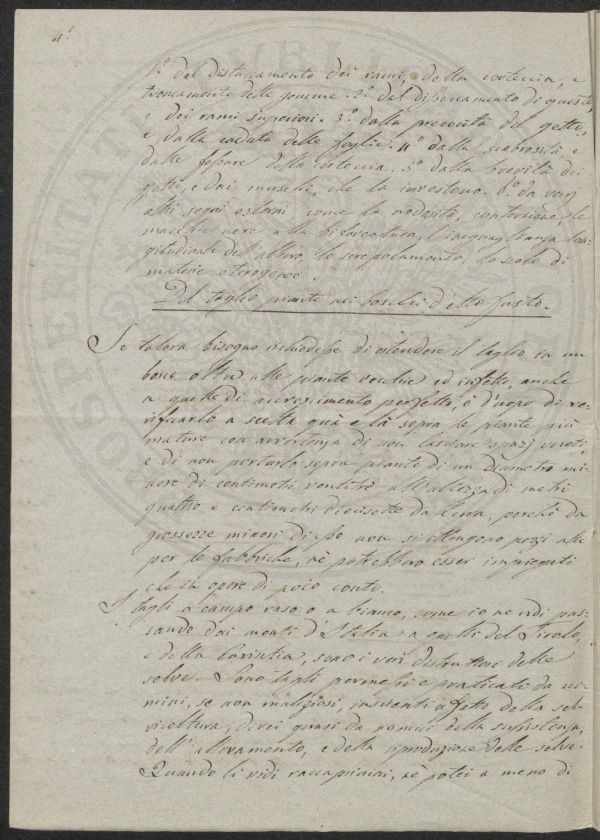 4.°
1.° dal distaccamento dei rami, della corteccia, e
troncamento delle gemme. 2.° dal disseccamento di queste,
e dei rami superiori. 3.° dalla precocità del getto,
e dalla caduta delle foglie. 4.° dalla scabrosità, e
dalle fessure della corteccia. 5.° dalla brevità dei
getti, e dai muschi, che la investono. 6.° da varj
altri segni esterni come la nodosità, contorsione, le
macchie nere alla biforcatura, l'ineguaglianza lon-
gitudinale dell'albero, lo screpolamento, lo scolo di
materie eterogenee.
Del taglio piante nei boschi d'alto fusto.
Se talora bisogno richiedesse di estendere il taglio in un
bosco oltre alle piante vecchie ed infette, anche
a quelle di accrescimento perfetto, è d'uopo di ve-
rificarlo a scelta quà e là sopra le piante più
mature con avvertenza di non lasciare spazj vuoti,
e di non portarlo sopra piante di un diametro mi-
nore di centimetri ventitrè all'altezza di metri
quattro e centimetri diecisette da terra, perchè da
grossezze minori di esso non si ottengono pezzi atti
per le fabbriche, nè potrebbero esser impiegati
che in opere di poco conto.
I tagli a campo raso o a bianco, come io ne vidi pas-
sando dai monti d'Italia a quelli del Tirolo,
e della Carintia, sono i veri distruttori delle
selve. Sono tagli permessi e praticati da uo-
mini, se non maliziosi, inscienti affatto della sel-
vicoltura, direi quasi da nemici della sussistenza,
dell'allevamento, e della riproduzione delle selve.
Quando li vidi raccapricciai, nè potei a meno di